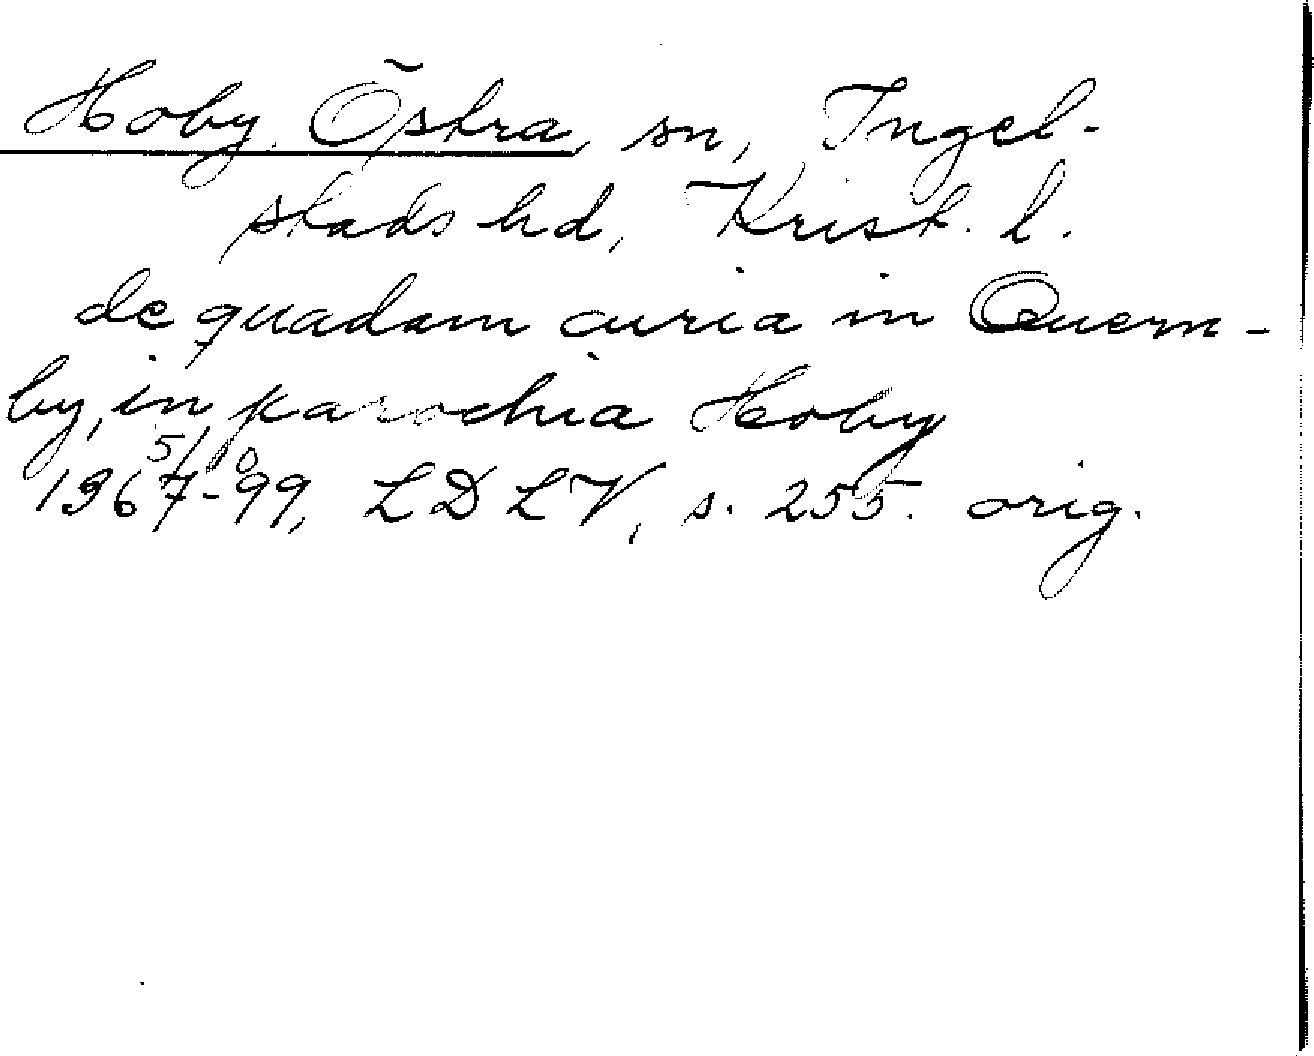 Hoby, Östra, sn, Ingel-
stads hd, Krist. l.
de quadam curia in Quern-
by, in parochia Hoby
1367-99, LDLV, s. 255. orig.